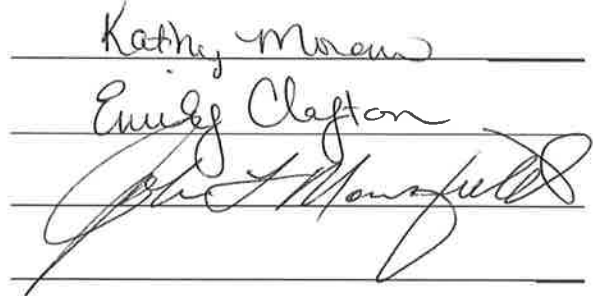 Kathy Moreau
Emily Clayton
John L Mansfield